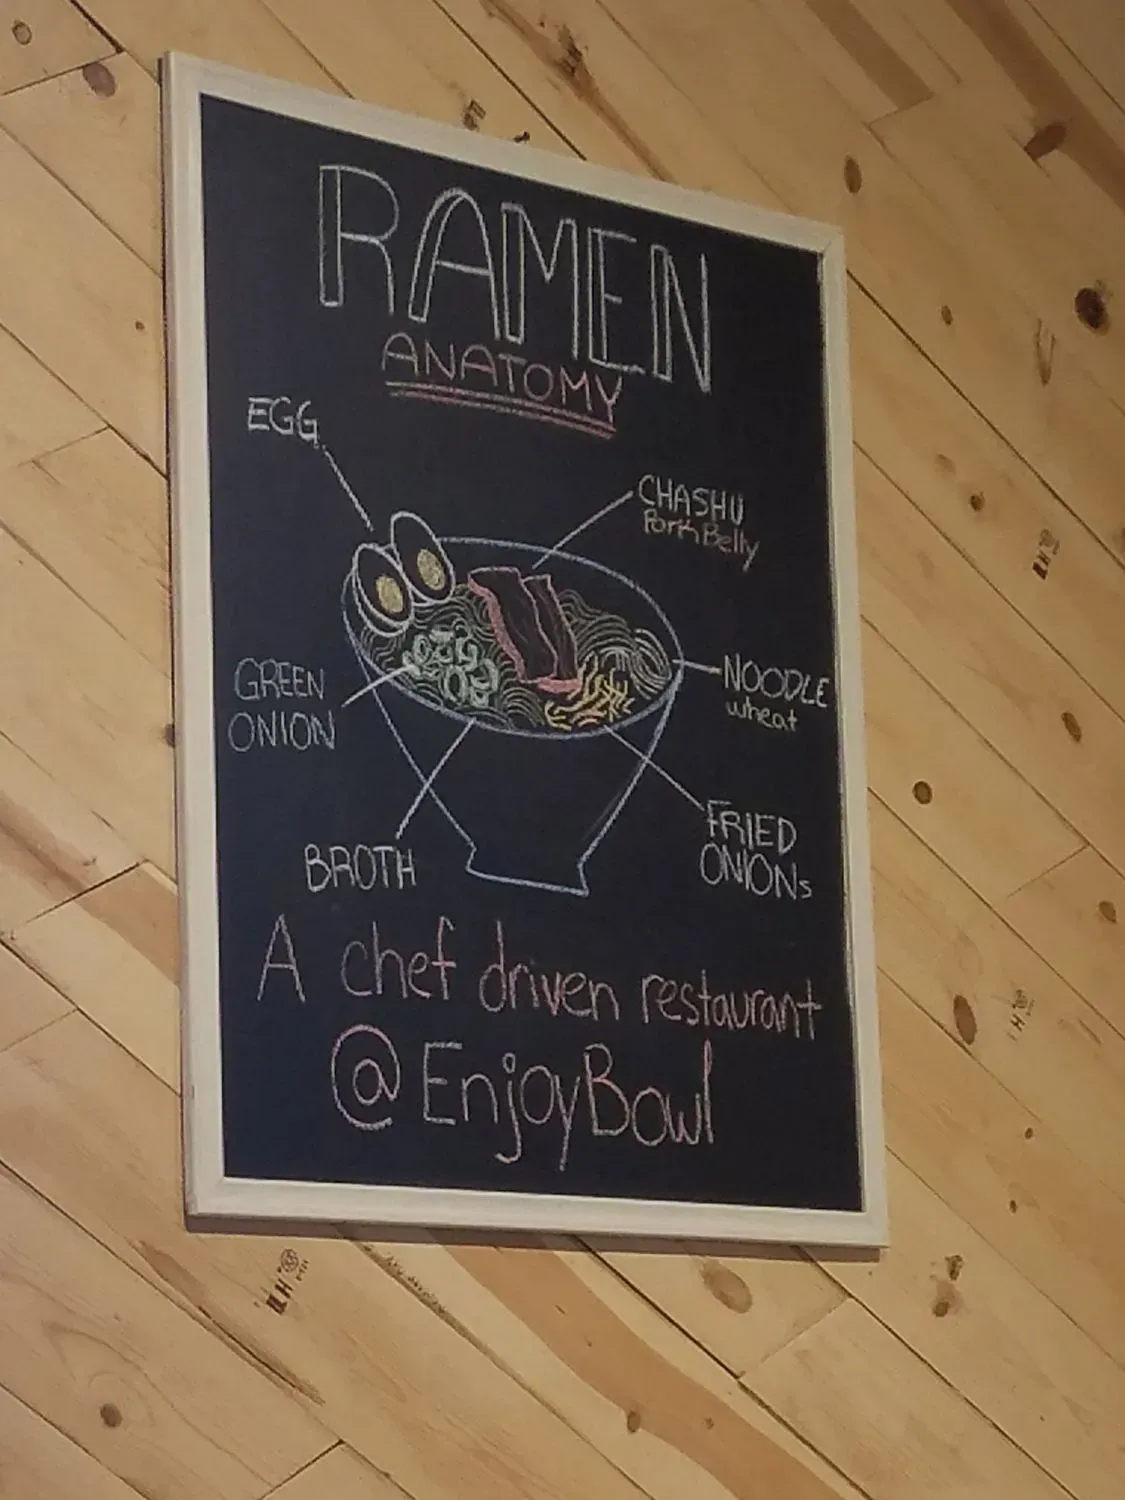 RAMEN
ANATOMY
EGG
CHASHU
Pork Belly
GREEN
ONION
NOODLE
wheat
FRIED
ONIONs
BROTH
A chef driven restaurant
@EnjoyBowl